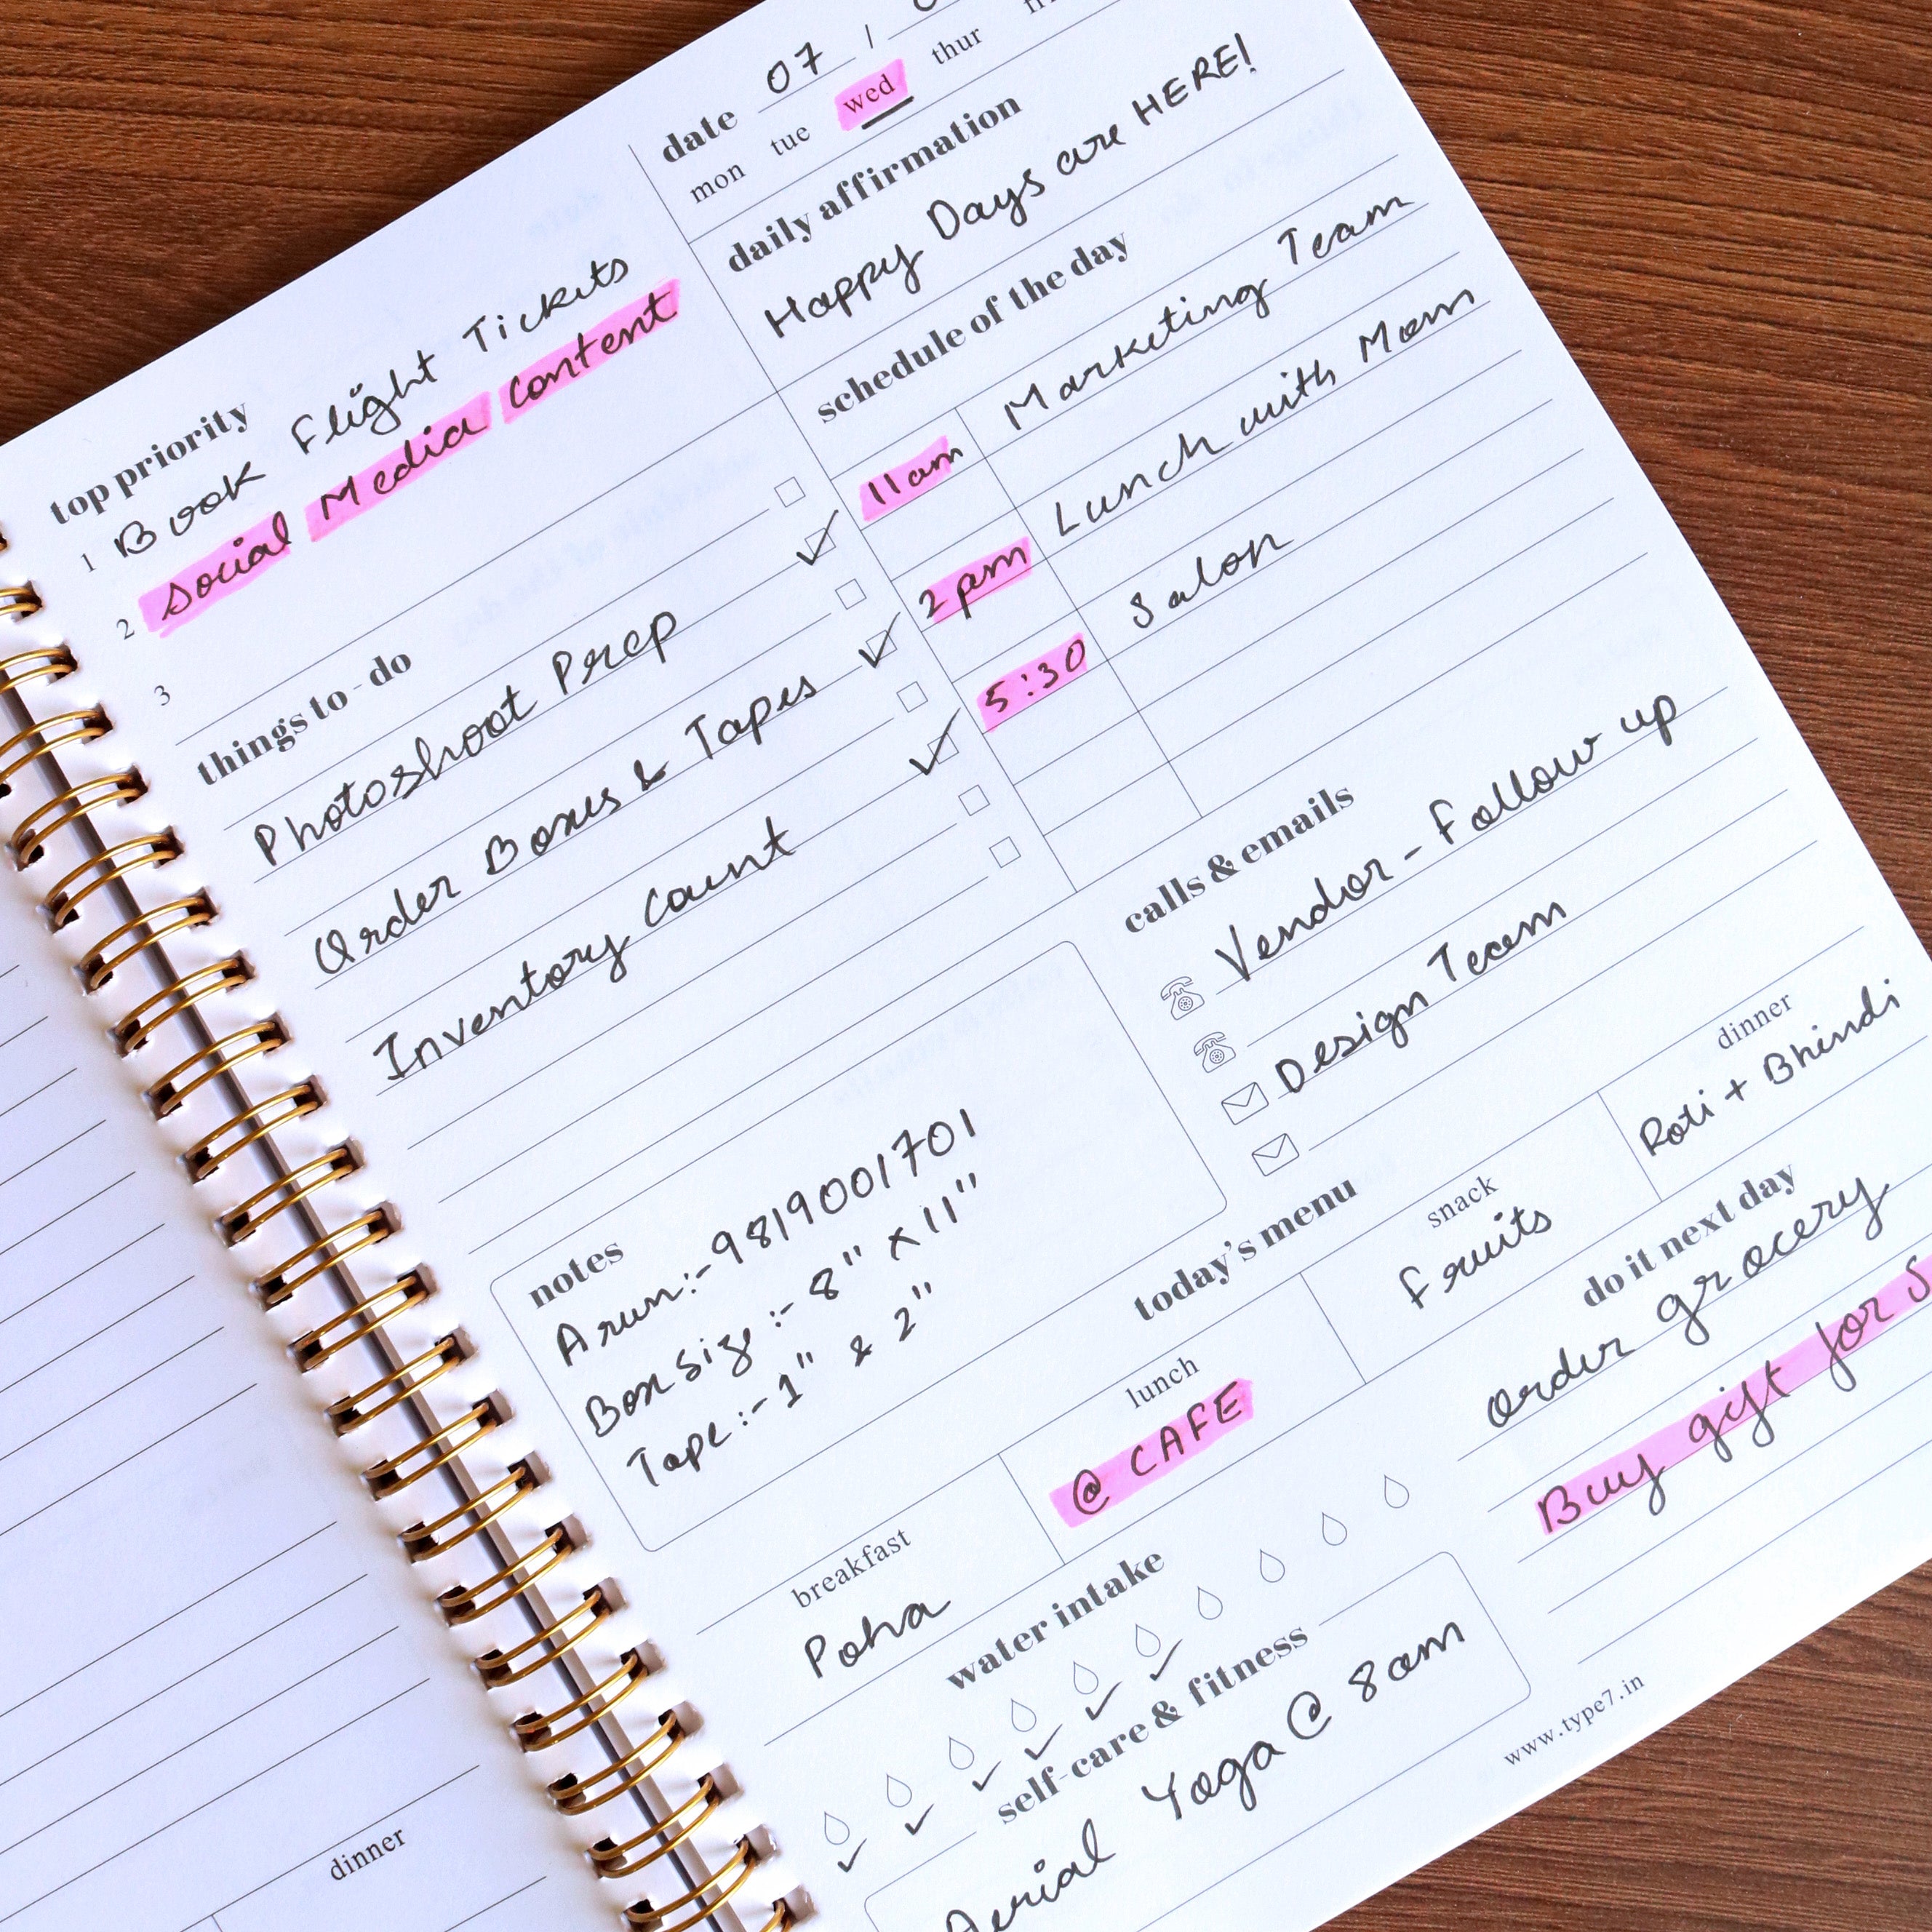 date 07 /
mon tue wed thur
daily affirmation
Happy Days are HERE!
top priority
1 Book Flight Tickets
2 Social Media Content
3
things to-do
Photoshoot Prep
Order Boxes & Tapes
Inventory Count
schedule of the day
11am Marketing Team
2pm Lunch with Mom
5:30 Salon
calls & emails
Vendor - Follow up
Design Team
notes
Arun:- 9819001701
Box Size :- 8" x 11"
Tape:- 1" & 2"
today's menu
breakfast
Poha
lunch
@ CAFE
snack
Fruits
dinner
Roti + Bhindi
water intake
self-care & fitness
Aerial Yoga @ 8am
do it next day
Order grocery
Buy gift for
www.type7.in
dinner